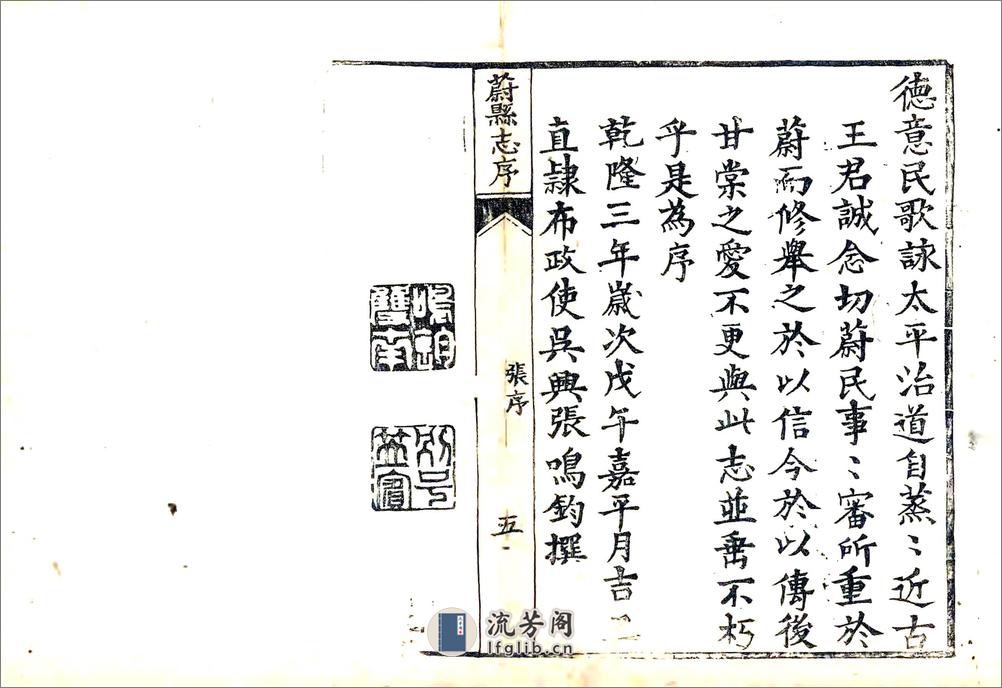 德意民歌詠太平治道自蒸〻近古
王君誠念切蔚民事〻審所重於
蔚而修舉之於以信今於以傳後
甘棠之愛不更與此志並垂不朽
乎是為序
乾隆三年歲次戊午嘉平月吉
直隸布政使吳興張鳴鈞撰
蔚縣志序
張序
五
流芳阁
lfglib.cn